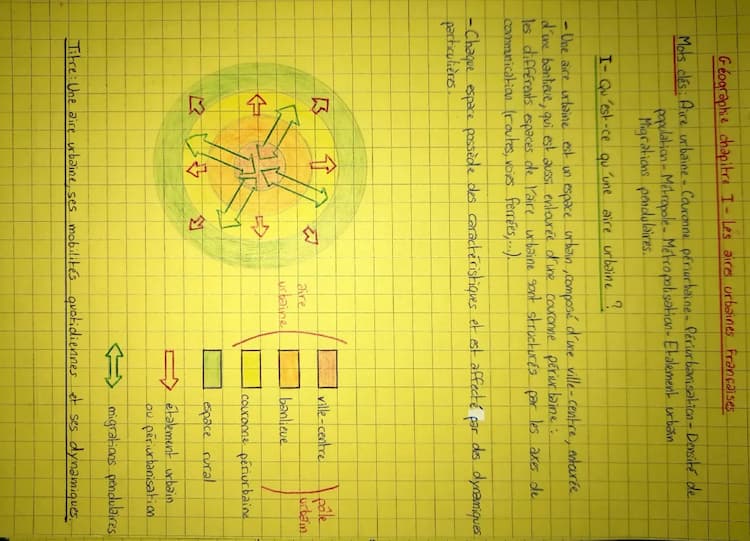 Géographie chapitre I - Les aires urbaines françaises
Mots clés: Aire urbaine - Couronne périurbaine - Périurbanisation - Densité de
population - Métropole - Métropolisation - Etalement urbain
Migrations pendulaires.
I - Qu'est-ce qu'une aire urbaine ?
- Une aire urbaine est un espace urbain, composé d'une ville-centre, entourée
d'une banlieue, qui est aussi entourée d'une couronne périurbaine:
les différents espaces de l'aire urbaine sont structurés par les axes de
communication (routes, voies ferrées,...)
- Chaque espace possède des caractéristiques et est affecté par des dynamiques
particulières
aire
urbaine
ville-centre
banlieue
pôle
urbain
couronne périurbaine
espace rural
étalement urbain
ou périurbanisation
migrations pendulaires
Titre: Une aire urbaine, ses mobilités quotidiennes et ses dynamiques.